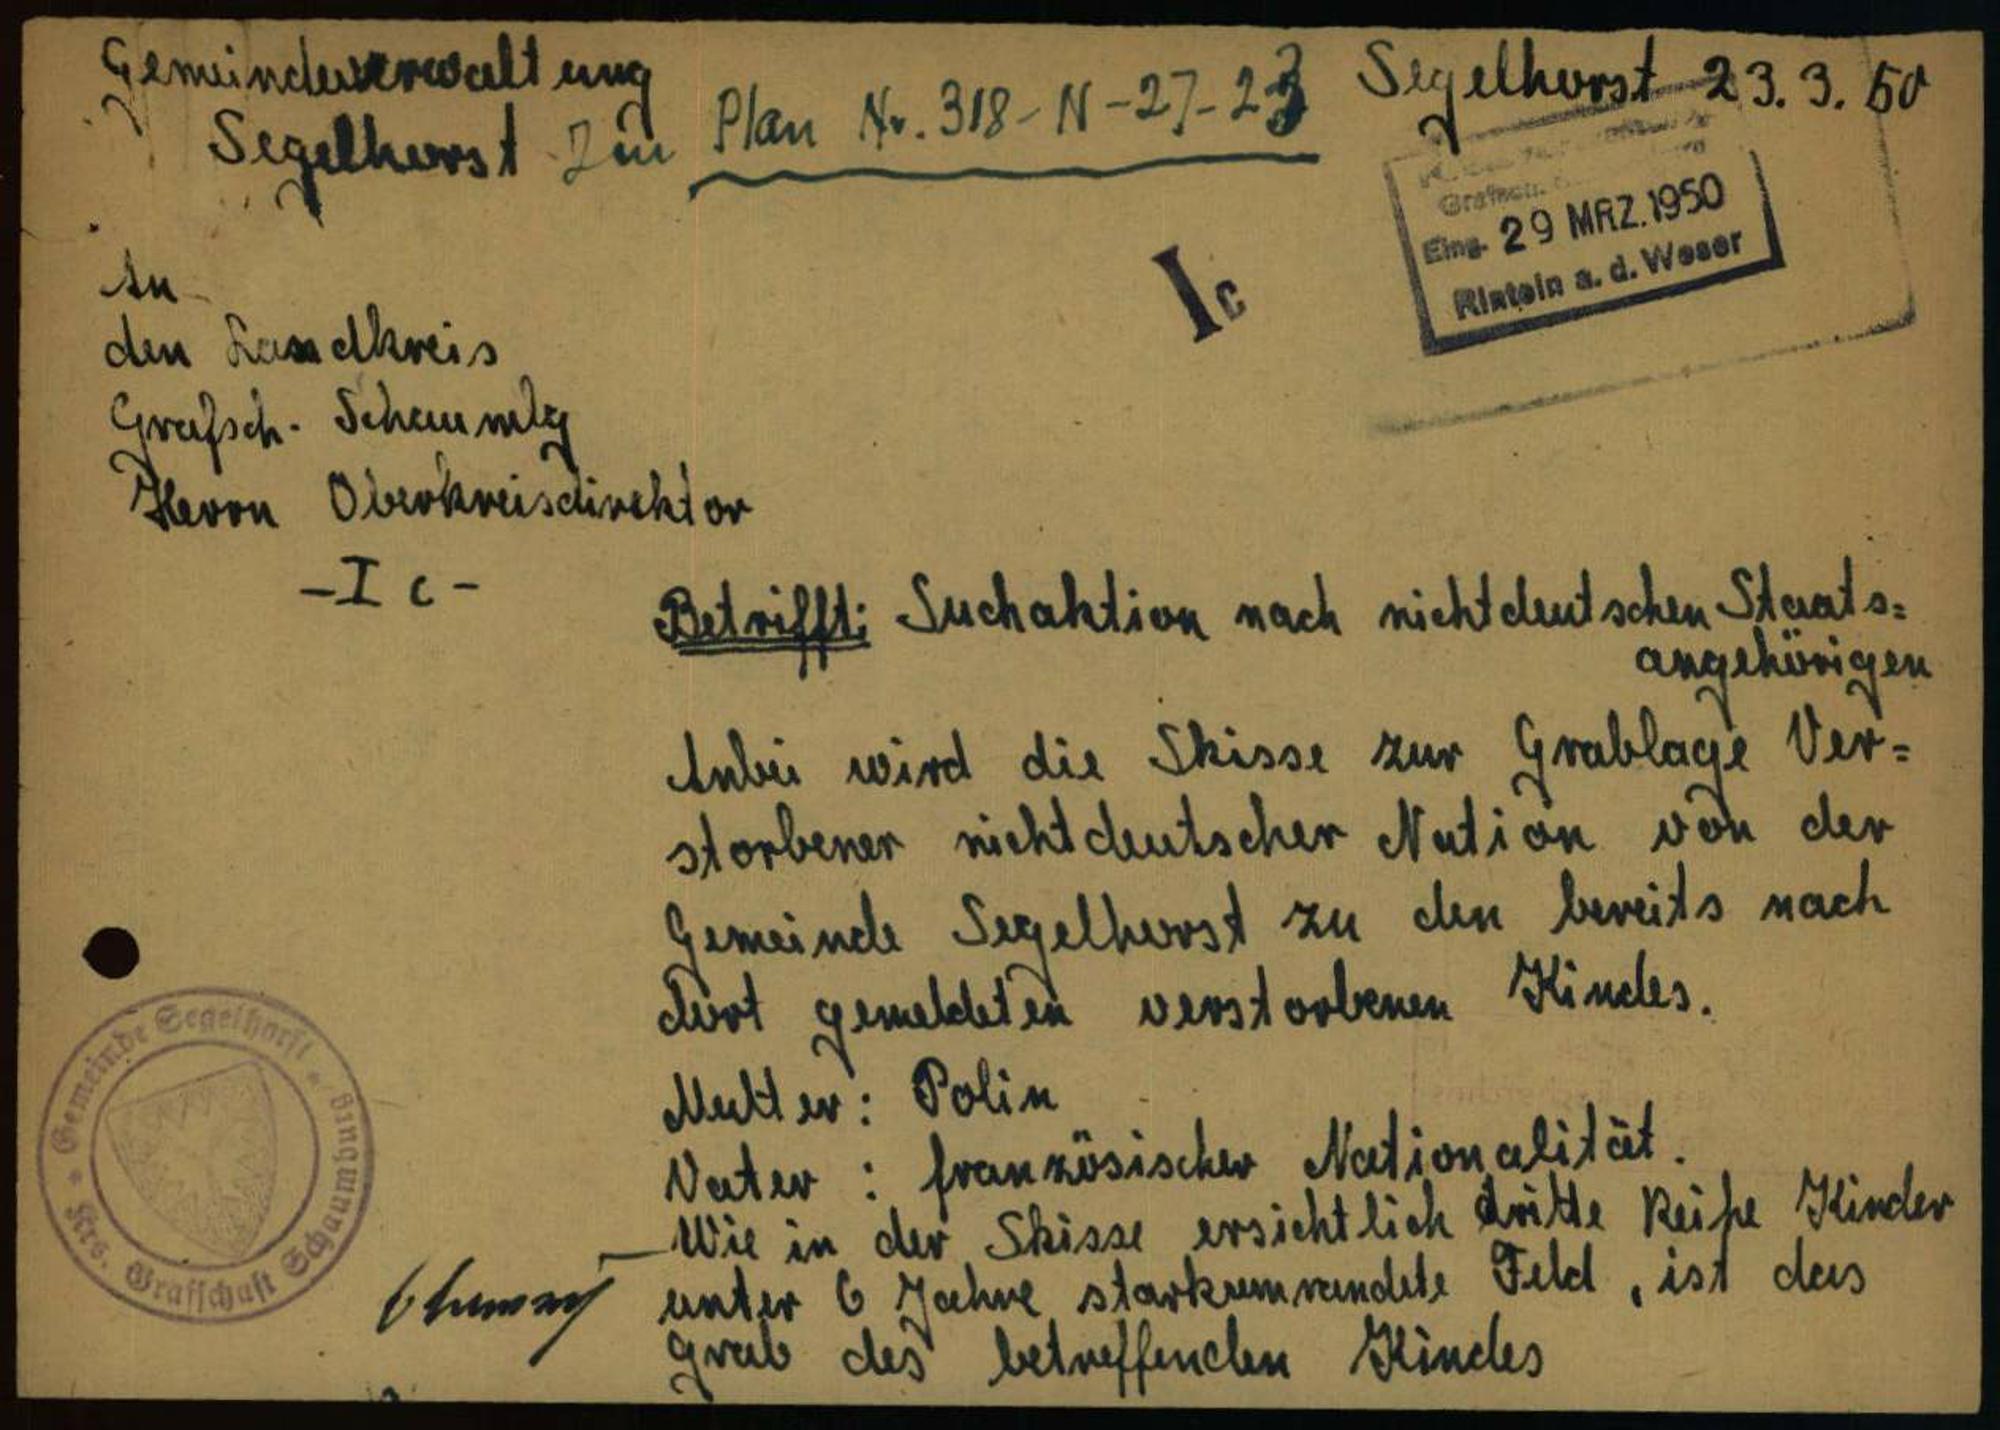 Gemeindeverwaltung
Segelhorst
Zu Plan Nr. 318-N-27-23
Segelhorst 23.3.50
Grafsch.
Eing. 29 MRZ. 1950
Rinteln a. d. Weser
Ic
An
den Landkreis
Grafsch. Schaumbg
Herrn Oberkreisdirektor
-I c-
Betrifft: Suchaktion nach nichtdeutschen Staats=
angehörigen
Anbei wird die Skisse zur Grablage Ver=
storbener nichtdeutscher Nation von der
Gemeinde Segelhorst zu den bereits nach
dort gemeldeten verstorbenen Kindes.
Mutter: Polin
Vater : französischer Nationalität.
Wie in der Skisse ersichtlich dritte Reihe Kinder
unter 6 Jahre starkumrandete Feld, ist das
Grab des betreffenden Kindes
Gemeinde Segelhorst
Krs. Grafschaft Schaumburg